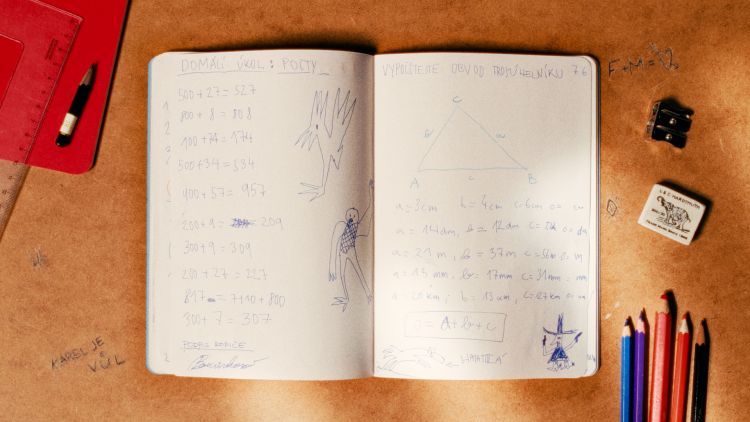 DOMÁCÍ ÚKOL: POČTY
500 + 27 = 527
800 + 8 = 808
100 + 74 = 174
500 + 34 = 534
900 + 57 = 957
200 + 9 = 209
300 + 9 = 309
200 + 27 = 227
817 = 7 + 10 + 800
300 + 7 = 307
PODPIS RODIČE
VYPOČÍTEJTE OBVOD TROJÚHELNÍKU 76
C
b a
A c B
a = 3cm b = 4cm c = 6cm
a = 14dm, b = 12dm
a = 21m, b = 37m c = 56m
a = 13mm, b = 17mm c = 31mm
b = 13km, c = 27km
o = A + b + c
F + M =
KAREL JE
VŮL
L & C HARDTMUTH